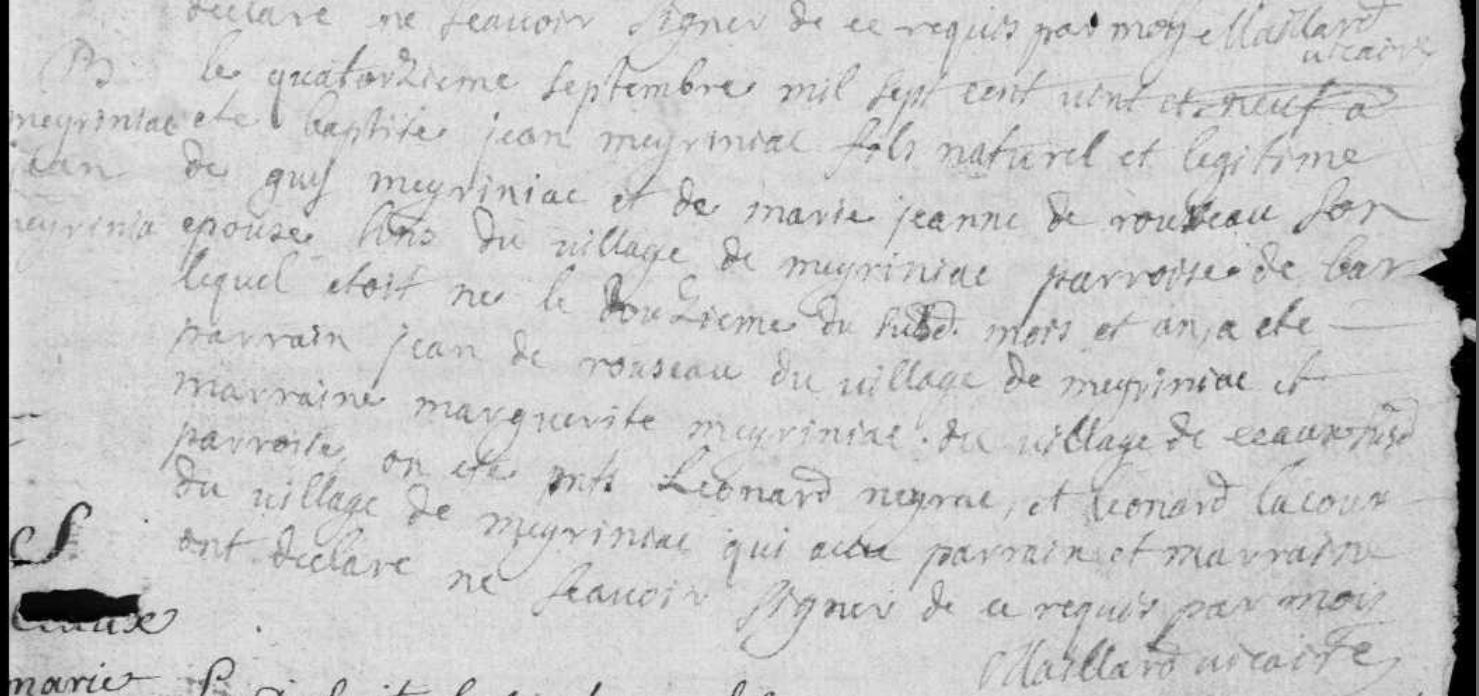 declare ne sçauoir signer de ce requis par moy Maillard
uicaire
B. le quatorzieme septembre mil sept cent uint et neuf a
meyriniac ete baptise jean meyriniac fils naturel et legitime
jean de guy meyriniac et de marie jeanne de rouseau son
meyrinia epouse du village de meyriniac parroisse de bar
lequel etoit ne le douzieme du susd. mois et an, a ete
parrain jean de rouseau du uillage de meyriniac et
marraine marguerite meyriniac du uillage de ceaux susd
parroisse, on ete pnts Leonard neyrac, et leonard lacour
du uillage de meyriniac qui auec parrain et marraine
ont declare ne sçauoir signer de ce requis par mois
Maillard uicaire
S
ceaux
marie